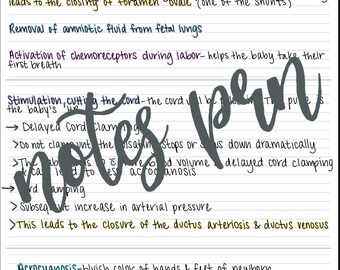 leads to the closing of foramen ovale (one of the shunts)
Removal of amniotic fluid from fetal lungs
Activation of chemoreceptors during labor- helps the baby take their
first breath
Stimulation, cutting the cord- the cord will be
the baby's up
→ Delayed Cord Clamping
> Do not clamp until the pulsating stops or slows down dramatically
blood volume delayed cord clamping
acrocyanosis
→ Cord clamping
> Subsequent increase in arterial pressure
> This leads to the closure of the ductus arteriosis & ductus venosus
Acrocyanosis- bluish color of hands & feet of newborn
notes pen